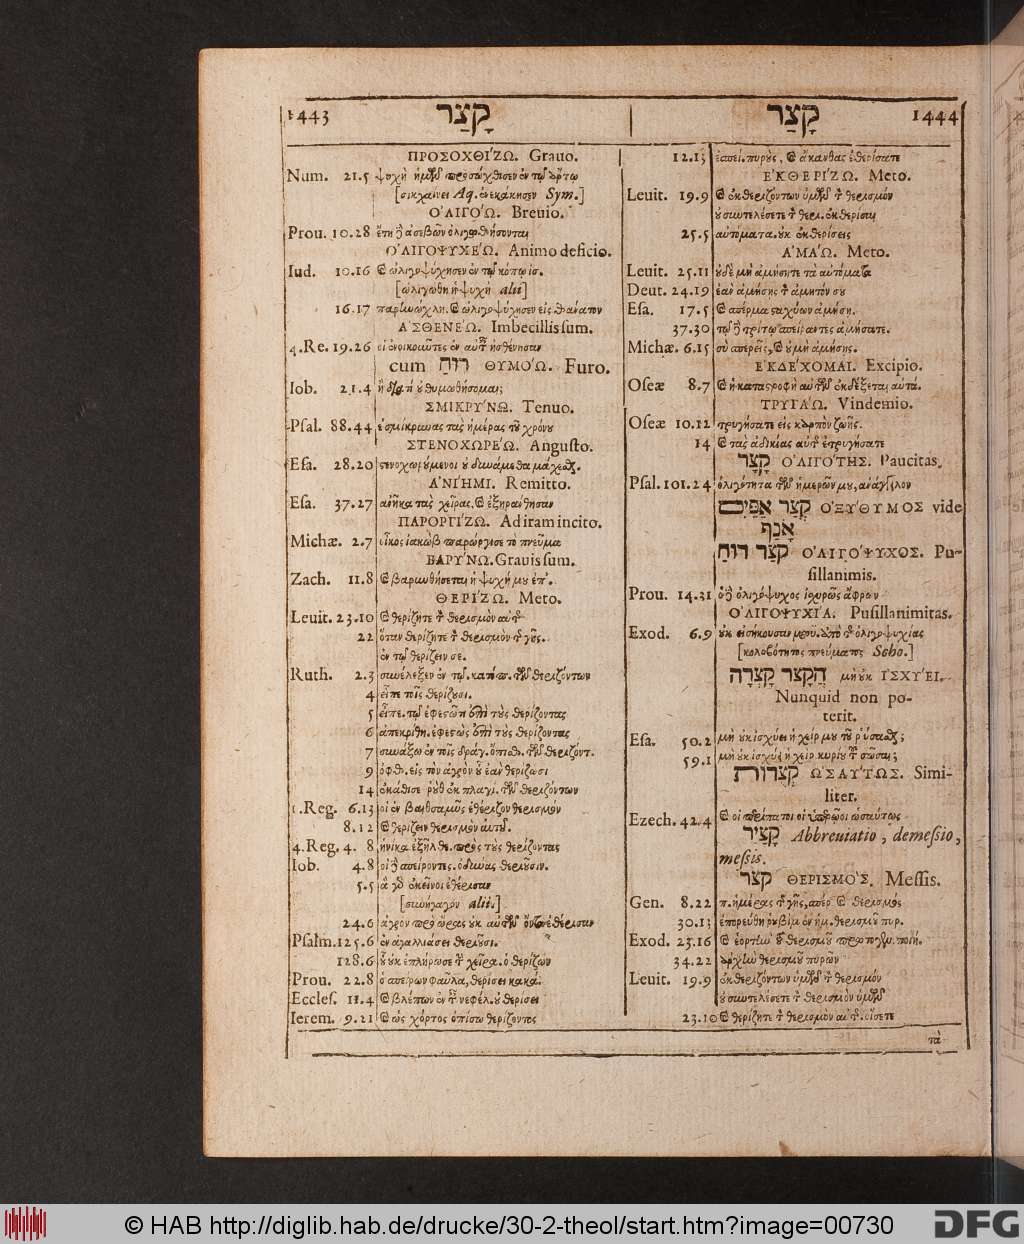 1443 קָצַר
ΠΡΟΣΟΧΘΙΖΩ. Grauo.
Num. 21.5 ψυχὴ ἡμῶν προσώχθισεν ἐν τῷ ἄρτῳ
[σικχαίνει Aq. ἐνεκάκησεν Sym.]
ΟʼΛΙΓΟΏ. Breuio.
Prou. 10.28 ἔτη ἀσεβῶν ὀλιγωθήσονται
ΟʼΛΙΓΟΨΥΧΕΏ. Animo deficio.
Iud. 10.16 ὠλιγοψύχησεν ἐν τῷ κόπῳ ἰσ.
[ὠλιγώθη ἡ ψυχὴ alii]
16.17 ὠλιγοψύχησεν εἰς θάνατον
ΑʼΣΘΕΝΕΏ. Imbecillis sum.
4.Re. 19.26 οἱ ἐνοικοῦντες ἐν αὐτῇ ἠσθένησαν
cum רוּחַ ΘΥΜΟΏ. Furo.
Iob. 21.4 ἢ διατί οὐ θυμωθήσομαι;
ΣΜΙΚΡΥΝΩ. Tenuo.
Psal. 88.44 ἐσμίκρυνας τὰς ἡμέρας τοῦ χρόνου
ΣΤΕΝΟΧΩΡΕΏ. Angusto.
Esa. 28.20 στενοχωρούμενοι οὐ δυνάμεθα μάχεσθ.
ΑʼΝΙΉΜΙ. Remitto.
Esa. 37.27 ἀνῆκα τὰς χεῖρας, ἐξηράνθησαν
ΠΑΡΟΡΓΙΖΩ. Ad iram incito.
Michæ. 2.7 οἶκος ἰακὼβ παρώργισε τὸ πνεῦμα
ΒΑΡΥΝΩ. Grauis sum.
Zach. 11.8 βαρυνθήσεται ἡ ψυχή μου ἐπ'.
ΘΕΡΙΖΩ. Meto.
Leuit. 23.10 θερίζητε τ θερισμὸν αὐτ
22 ὅταν θερίζητε τ θερισμὸν τ γῆς.
ἐν τῷ θερίζειν σε.
Ruth. 2.3 συνέλεξεν ἐν τῷ. κατόπ. τῶν θεριζόντων
4 εἶπε τοῖς θερίζουσι.
5 εἶπε. τῷ ἐφεστῶτι ἐπὶ τοὺς θερίζοντας
6 ἀπεκρίθη. ἐφεστὼς ἐπὶ τοὺς θερίζοντας
7 συνάξω ἐν τοῖς δράγ. ὄπισθ. τῶν θεριζόντ.
9 ὀφθ. εἰς τὸν ἀγρὸν οὗ ἐὰν θερίζωσι
14 ἐκάθισε ῥοὺθ ἐκ πλαγί. τῶν θεριζόντων
1.Reg. 6.13 οἱ ἐν βαιθσαμῦς ἐθέριζον θερισμὸν
8.12 θερίζειν θερισμὸν αὐτοῦ.
4.Reg. 4. 8 ἡνίκα ἐξῆλθε. πρὸς τοὺς θερίζοντας
Iob. 4.8 οἱ σπείροντες. ὀδύνας θεριοῦσιν.
5.5 ἃ γὰρ ἐκεῖνοι ἐθέρισαν
[συνήγαγον alii.]
24.6 ἀγρὸν πρὸ ὥρας οὐκ αὐτῶν ὄντα ἐθέρισαν
Psalm. 125.6 ἐν ἀγαλλιάσει θεριοῦσι.
128.6 οὗ οὐκ ἐπλήρωσε τ χεῖρα. ὁ θερίζων
Prou. 22.8 ὁ σπείρων φαῦλα, θερίσει κακά.
Eccles. 11.4 βλέπων ἐν τ νεφέλ. οὐ θερίσει
Ierem. 9.21 ὡς χόρτος ὀπίσω θερίζοντος
קָצַר 1444
12.13 σπεί. πυροὺς, ἀκάνθας ἐθερίσατε
ΕΚΘΕΡΙΖΩ. Meto.
Leuit. 19.9 ἐκθεριζόντων ὑμῶν τ θερισμόν
οὐ συντελέσετε τ θερ. ἐκθερίσαι
25.5 αὐτόματα. οὐκ ἐκθερίσεις
ΑʼΜΑΏ. Meto.
Leuit. 25.11 οὐδὲ μὴ ἀμήσητε τὰ αὐτόματα
Deut. 24.19 ἐὰν ἀμήσῃς τ ἀμητόν σου
Esa. 17.5 σπέρμα σταχύων ἀμήσῃ.
37.30 τῷ τρίτῳ σπείραντες ἀμήσατε.
Michæ. 6.15 σὺ σπερεῖς, οὐ μὴ ἀμήσῃς.
ΕʼΚΔΕΧΟΜΑΙ. Excipio.
Oseæ 8.7 ἡ καταστροφὴ αὐτῶν ἐκδέξεται αὐτά.
ΤΡΥΓΑΏ. Vindemio.
Oseæ 10.12 τρυγήσατε εἰς καρπὸν ζωῆς.
14 τὰς ἀδικίας αὐτ ἐτρυγήσατε
קָצָר ΟʼΛΙΓΟΤΗΣ. Paucitas.
Psal. 101.24 ὀλιγότητα τῶν ἡμερῶν μου, ἀνάγγειλον
קְצַר אַפַּיִם ΟΞΥΘΥΜΟΣ vide
אָנַף
קְצַר רוּחַ ΟʼΛΙΓΟΨΥΧΟΣ. Pu-
sillanimis.
Prou. 14.31 ὁ ὀλιγόψυχος ἰσχυρῶς ἄφρων
ΟʼΛΙΓΟΨΥΧΙΑ. Pusillanimitas.
Exod. 6.9 οὐκ εἰσήκουσαν μωυ. ἀπὸ τ ὀλιγοψυχίας
[κολοβότητος πνεύματος Scho.]
הֲקָצַר קָצְרָה μὴ οὐκ ΙΣΧΥΈΙ.
Nunquid non po-
terit.
Esa. 50.2 μὴ οὐκ ἰσχύει ἡ χείρ μου τοῦ ῥύσασθ;
59.1 μὴ οὐκ ἰσχύει ἡ χεὶρ κυρίου τ σῶσαι;
קְצֻרוֹת ΩʼΣΑΥΤΩΣ. Simi-
liter.
Ezech. 42.4 οἱ περίπατοι οἱ ὑπερῷοι ὡσαύτως
קָצִיר Abbreuiatio, demessio,
messis.
קָצִר ΘΕΡΙΣΜΟΣ. Messis.
Gen. 8.22 π. ἡμέρας τ γῆς, σπέρ. θερισμὸς
30.13 ἐπορεύθη ῥουβὶμ ἐν ἡμ. θερισμοῦ πυρ.
Exod. 23.16 ἑορτὴν θερισμοῦ πρωτογεν. ποιή.
34.22 ἀρχὴν θερισμοῦ πυρῶν
Leuit. 19.9 ἐκθεριζόντων ὑμῶν τ θερισμόν
οὐ συντελέσετε τ θερισμὸν ὑμῶν
23.10 θερίζητε τ θερισμὸν αὐτ. οἴσετε
τὰ
© HAB http://diglib.hab.de/drucke/30-2-theol/start.htm?image=00730
DFG